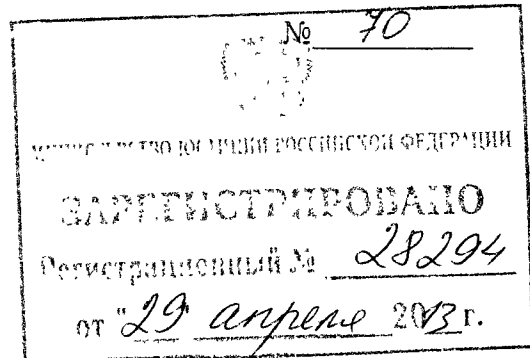 № 70
МИНИСТЕРСТВО ЮСТИЦИИ РОССИЙСКОЙ ФЕДЕРАЦИИ
ЗАРЕГИСТРИРОВАНО
Регистрационный № 28294
от "29" апреля 2013 г.